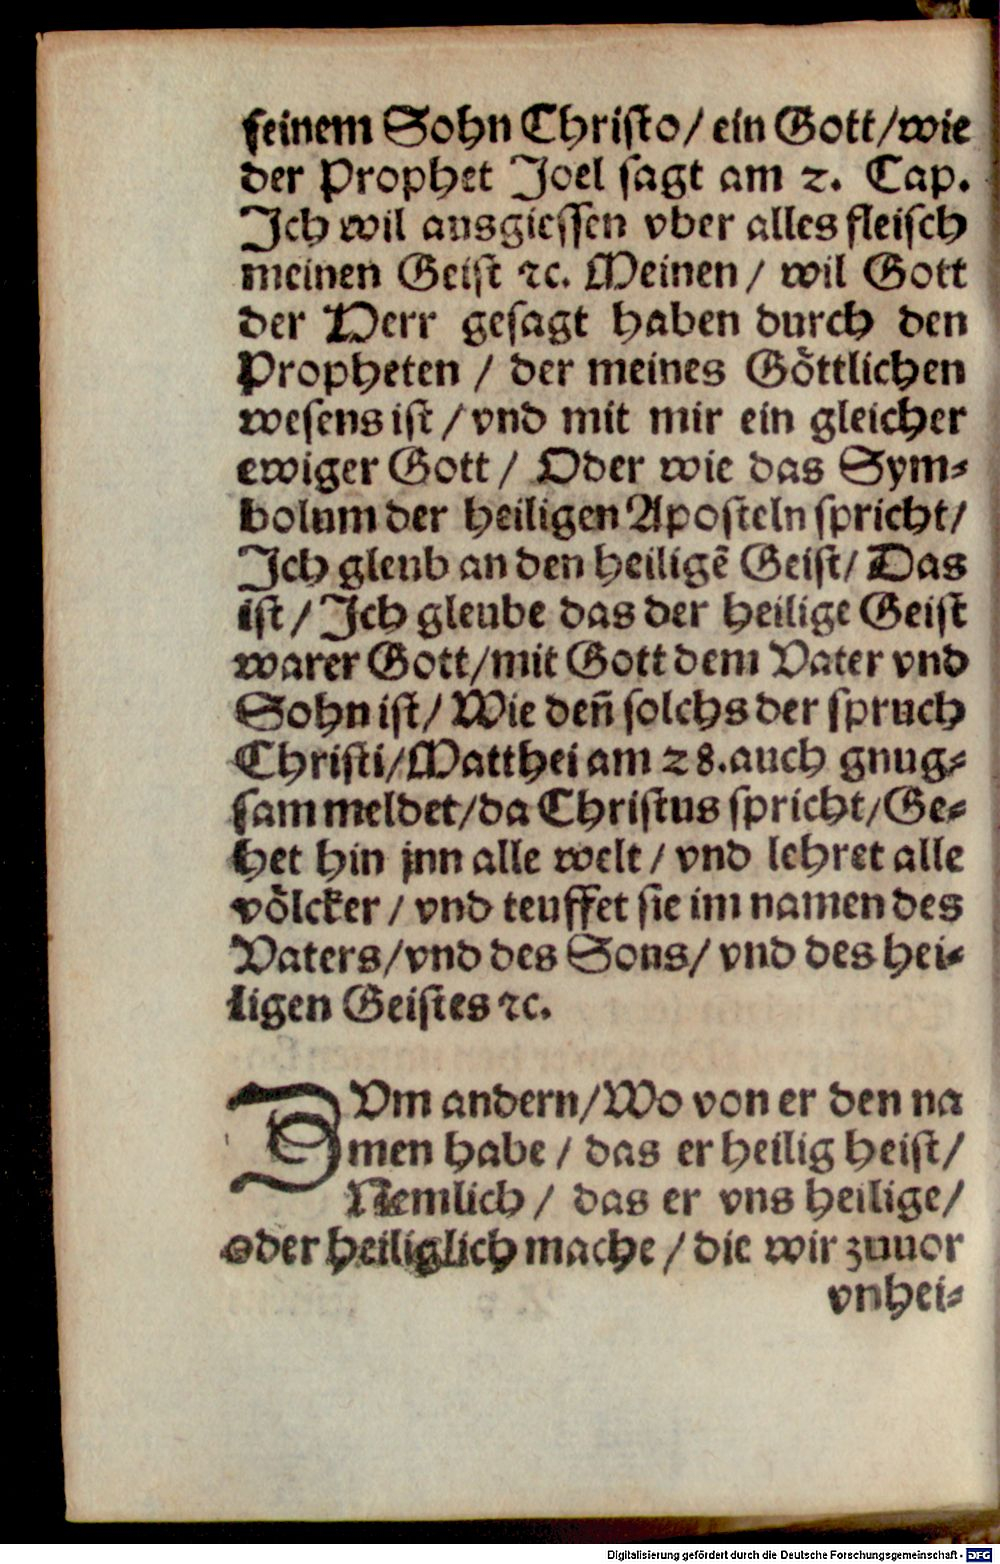 seinem Sohn Christo/ ein Gott/wie
der Prophet Joel sagt am 2. Cap.
Ich wil ausgiessen vber alles fleisch
meinen Geist ꝛc. Meinen/ wil Gott
der Herr gesagt haben durch den
Propheten / der meines Göttlichen
wesens ist / vnd mit mir ein gleicher
ewiger Gott / Oder wie das Sym⸗
bolum der heiligen Aposteln spricht/
Ich gleub an den heiligẽ Geist/ Das
ist / Ich gleube das der heilige Geist
warer Gott/mit Gott dem Vater vnd
Sohn ist/ Wie deñ solchs der spruch
Christi/Matthei am 28.auch gnug⸗
sam meldet/da Christus spricht/Ge⸗
het hin jnn alle welt / vnd lehret alle
völcker / vnd teuffet sie im namen des
Vaters/vnd des Sons/ vnd des hei⸗
ligen Geistes ꝛc.
ZVm andern/Wo von er den na
men habe / das er heilig heist/
Nemlich / das er vns heilige/
oder heiliglich mache / die wir zuuor
vnhei⸗
Digitalisierung gefördert durch die Deutsche Forschungsgemeinschaft - DFG